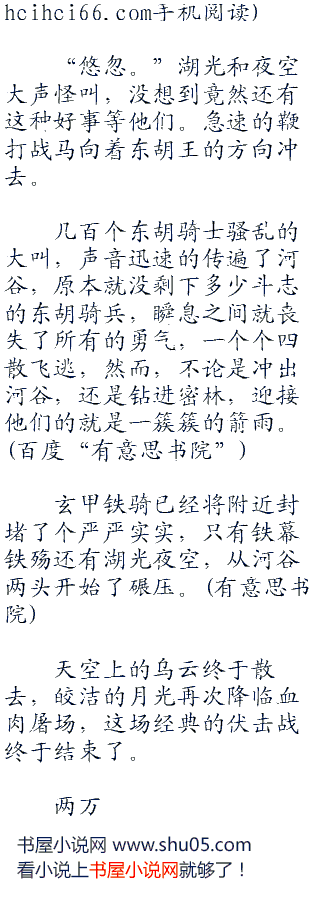 hcihci66.com手机阅读)
“悠忽。”湖光和夜空
大声怪叫，没想到竟然还有
这种好事等他们。急速的鞭
打战马向着东胡王的方向冲
去。
几百个东胡骑士骚乱的
大叫，声音迅速的传遍了河
谷，原本就没剩下多少斗志
的东胡骑兵，瞬息之间就丧
失了所有的勇气，一个个四
散飞逃，然而，不论是冲出
河谷，还是钻进密林，迎接
他们的就是一簇簇的箭雨。
(百度“有意思书院”)
玄甲铁骑已经将附近封
堵了个严严实实，只有铁幕
铁殇还有湖光夜空，从河谷
两头开始了碾压。(有意思书
院)
天空上的乌云终于散
去，皎洁的月光再次降临血
肉屠场，这场经典的伏击战
终于结束了。
两万
书屋小说网 www.shu05.com
看小说上书屋小说网就够了！